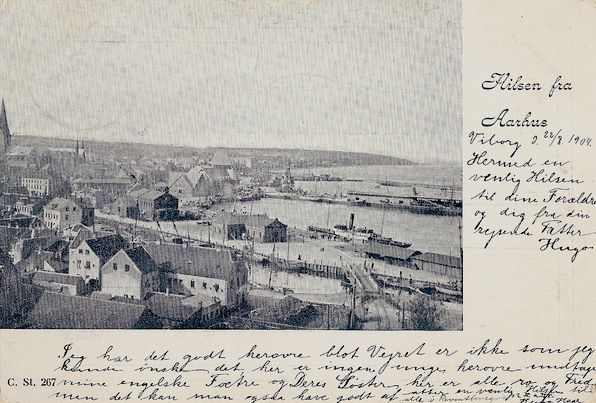 Hilsen fra
Aarhus
Viborg d. 22/8. 1904.
Hermed en
venlig Hilsen
til dine Forældre
og dig fra din
rejsende Fætter
Hugo
Jeg har det godt herovre blot Vejret er ikke som jeg
kunde ønske det, her er ingen unge herovre undtagen
mine engelske Fætre og Deres Søster, her er alle ro og Fred
men det kan man også have godt af efter en venlig Hilsen til
alle
C. St. 267